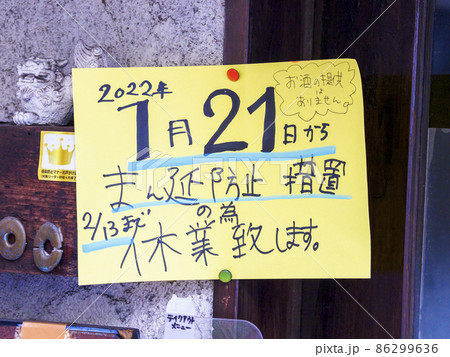 2022年
お酒の提供
は
ありません。
1月21日から
まん延防止 措置
の為
2/13まで
休業致します。
テイクアウト
メニュー
PIXTA
pixta.jp - 86299636